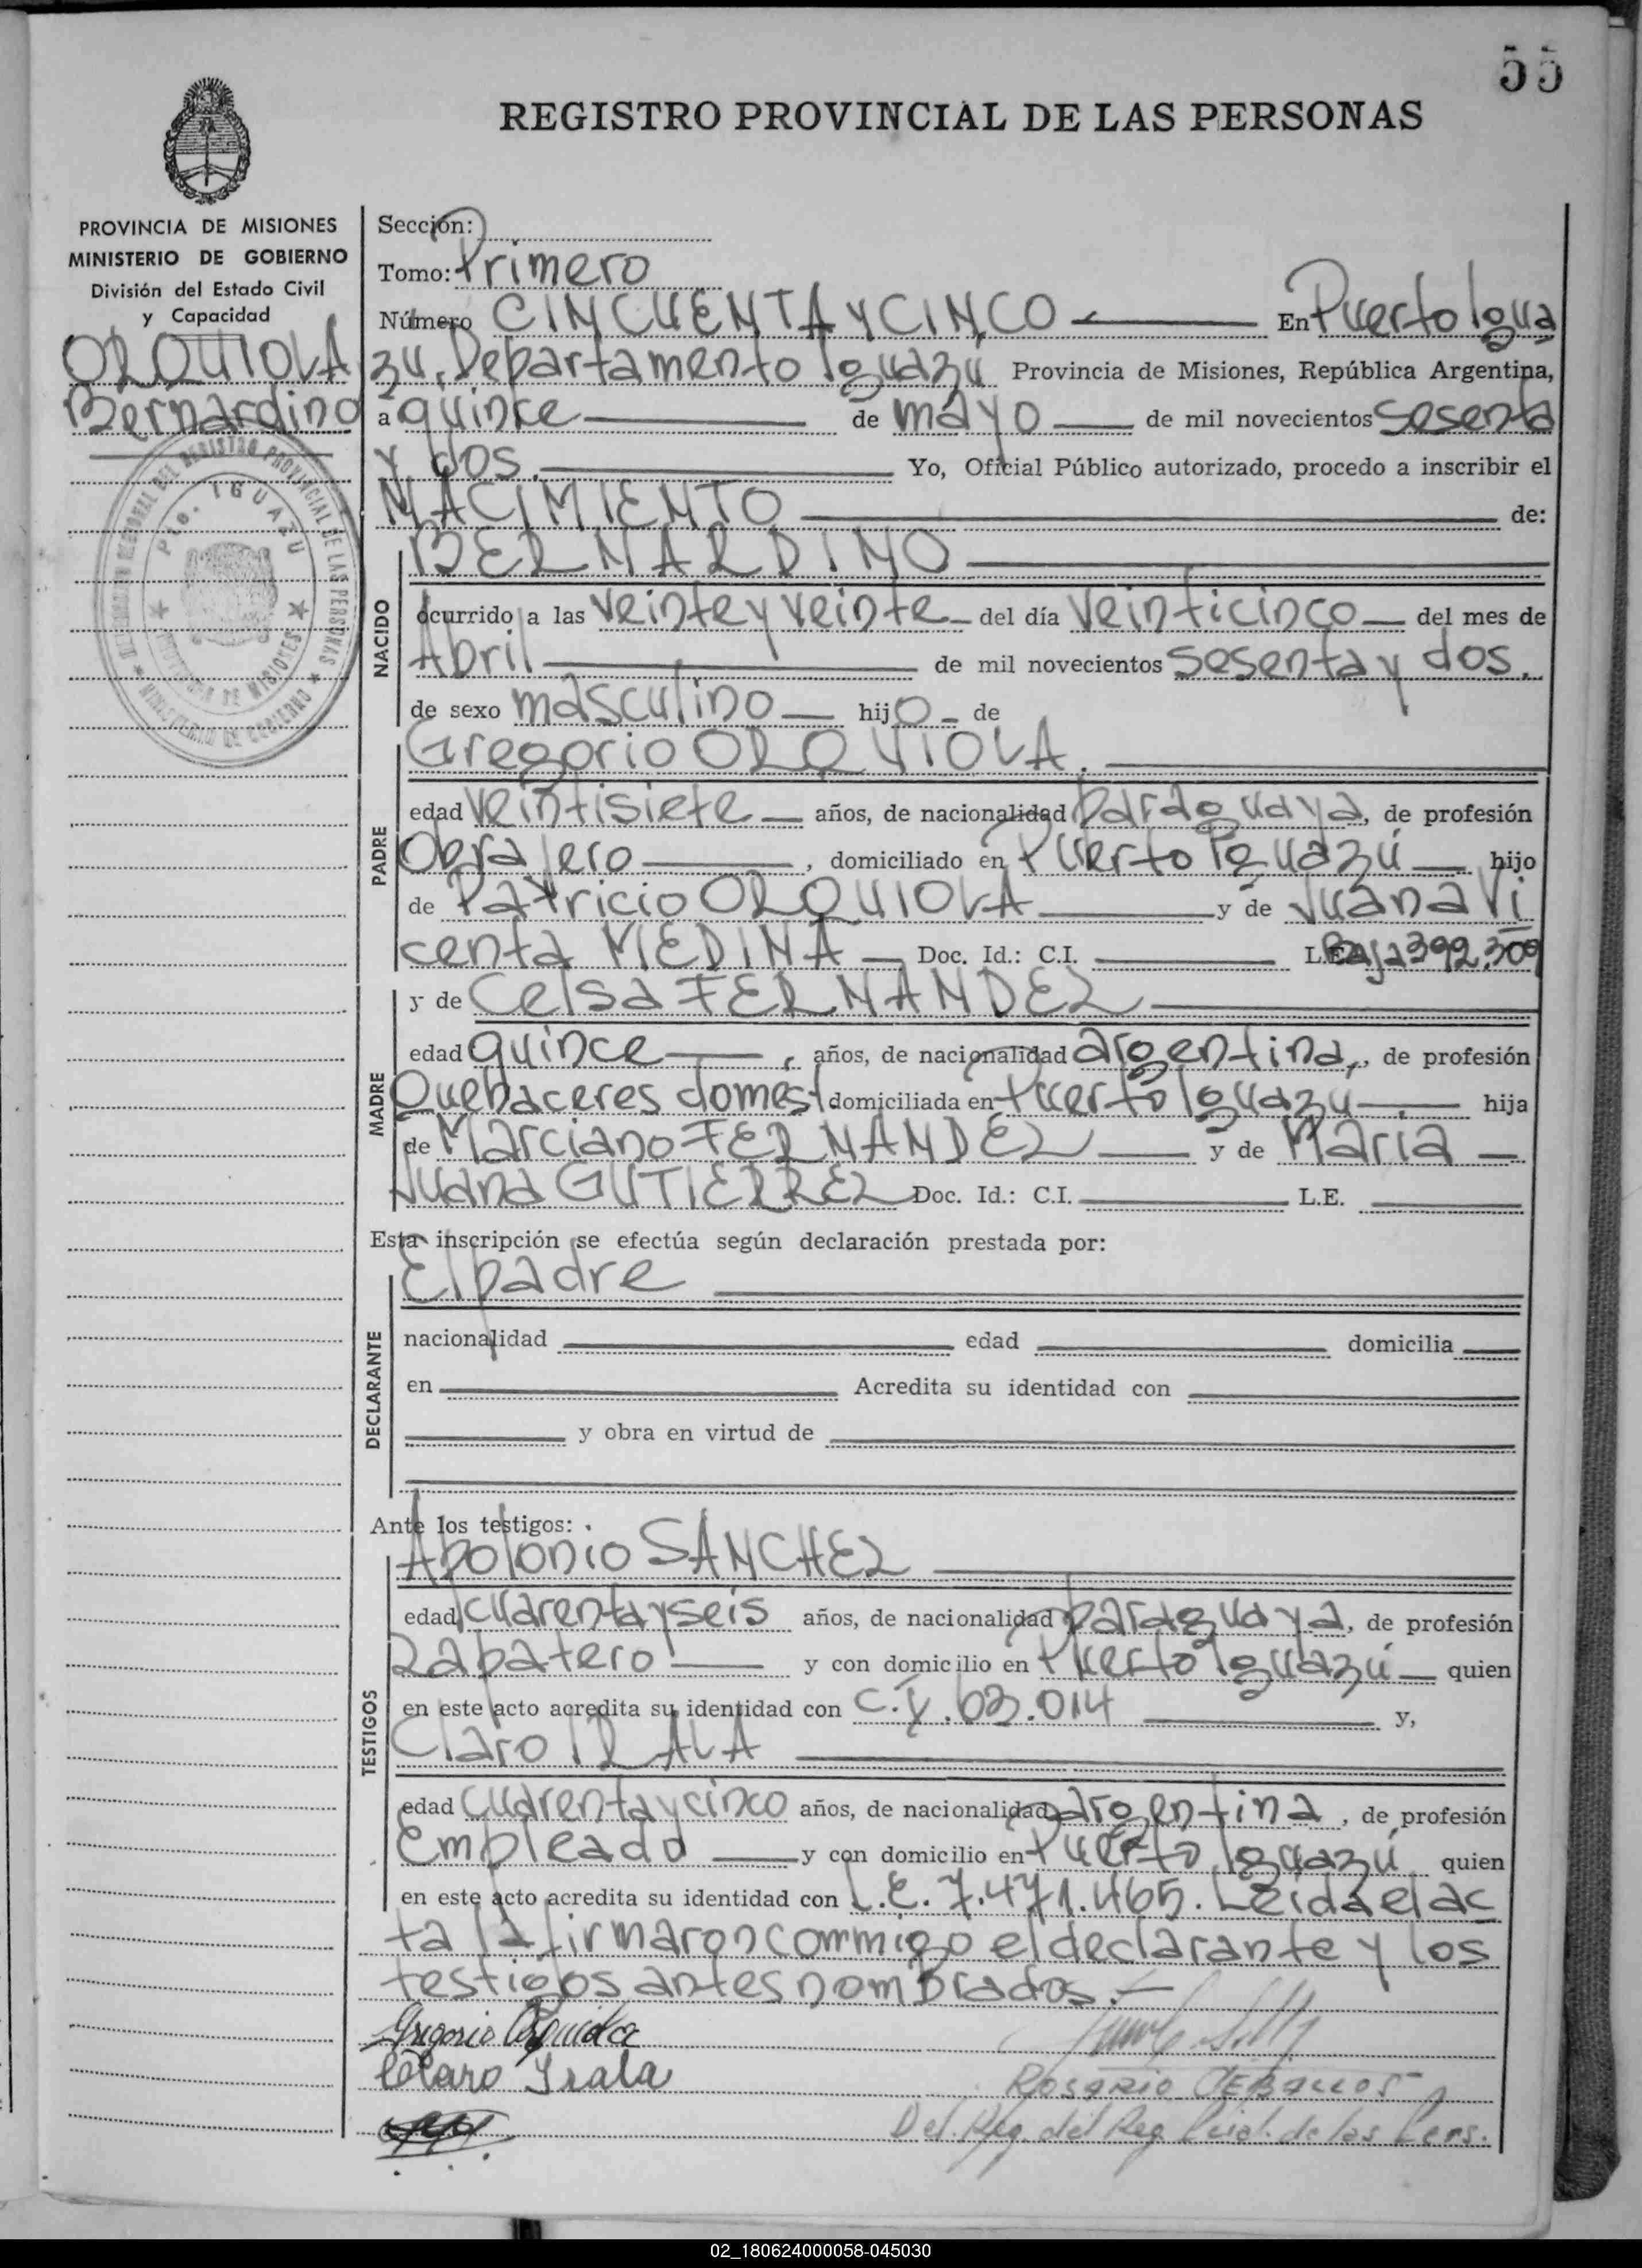 55
REGISTRO PROVINCIAL DE LAS PERSONAS
PROVINCIA DE MISIONES
MINISTERIO DE GOBIERNO
División del Estado Civil
y Capacidad
ORQUIOLA
Bernardino
DEL REGISTRO PROVINCIAL DE LAS PERSONAS
Pto. IGUAZU
PROVINCIA DE MISIONES
MINISTERIO DE GOBIERNO
Sección:
Tomo: Primero
Número CINCUENTA Y CINCO En Puerto Igua
zú, Departamento Iguazú Provincia de Misiones, República Argentina,
a quince de mayo de mil novecientos sesenta
y dos. Yo, Oficial Público autorizado, procedo a inscribir el
NACIMIENTO de:
NACIDO
BERNARDINO
ocurrido a las veinte y veinte del día veinticinco del mes de
Abril de mil novecientos sesenta y dos.
de sexo masculino hijo de
PADRE
Gregorio ORQUIOLA.
edad veintisiete años, de nacionalidad paraguaya, de profesión
Obrajero, domiciliado en Puerto Iguazú hijo
de Patricio ORQUIOLA y de Juana Vi
centa MEDINA Doc. Id.: C.I. L.E. Baja 392.309
MADRE
y de Celsa FERNANDEZ
edad quince, años, de nacionalidad argentina, de profesión
Quehaceres domést domiciliada en Puerto Iguazú hija
de Marciano FERNANDEZ y de María
Juana GUTIERREZ Doc. Id.: C.I. L.E.
Esta inscripción se efectúa según declaración prestada por:
DECLARANTE
El padre
nacionalidad edad domicilia
en Acredita su identidad con
y obra en virtud de
Ante los testigos:
TESTIGOS
Apolonio SANCHEZ
edad cuarenta y seis años, de nacionalidad paraguaya, de profesión
Zapatero y con domicilio en Puerto Iguazú quien
en este acto acredita su identidad con C.I. 63.014 y,
Claro IRALA
edad cuarenta y cinco años, de nacionalidad argentina, de profesión
Empleado y con domicilio en Puerto Iguazú quien
en este acto acredita su identidad con L.E. 7.471.465. Leida el ac
ta la firmaron conmigo el declarante y los
testigos antes nombrados.-
Gregorio Orquiola
Claro Irala
ROSARIO CEBALLOS
Del. Reg. del Reg. Pcial. de las Pers.
02_180624000058-045030